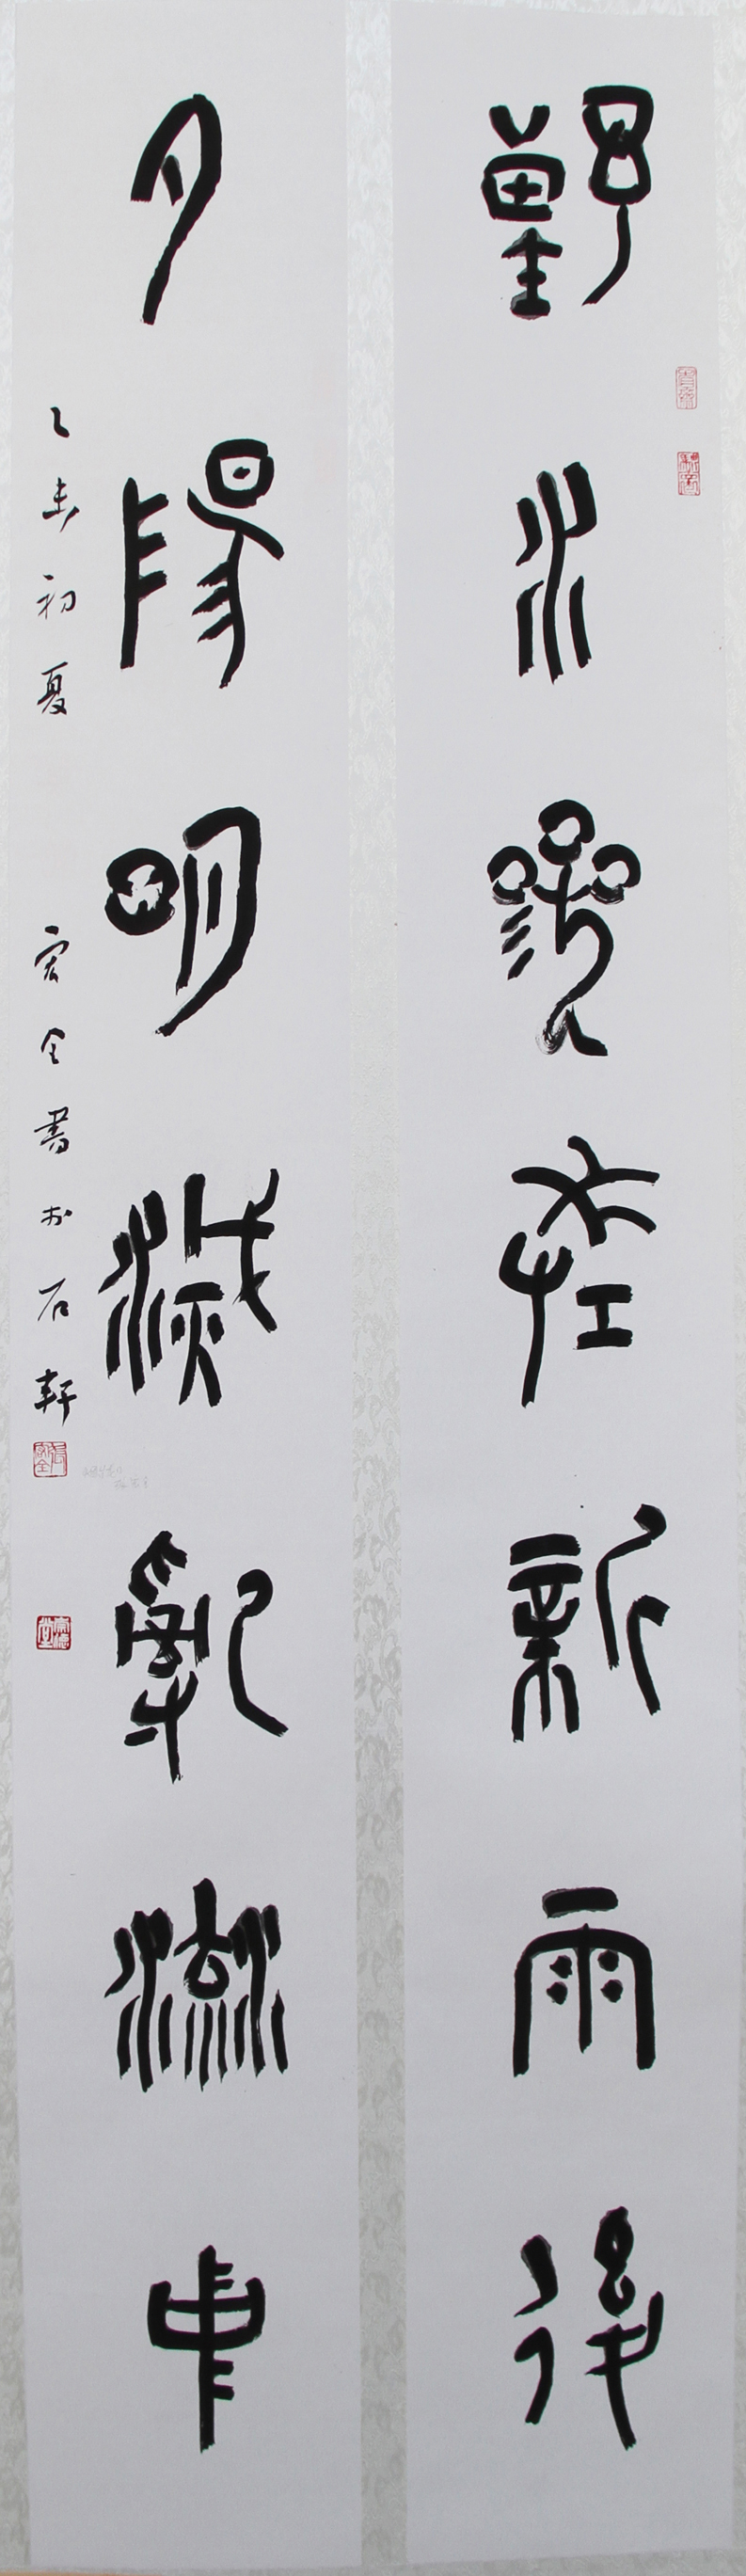 野水參差新雨後
夕陽明滅亂流中
乙未初夏 宏全書於石軒